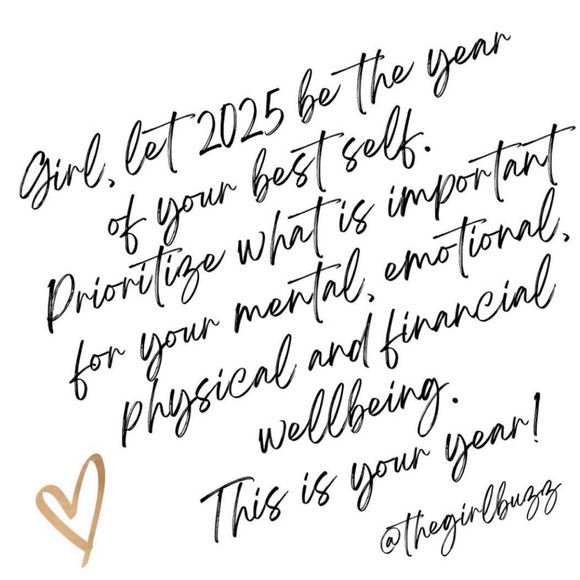 Girl, let 2025 be the year
of your best self.
Prioritize what is important
for your mental, emotional,
physical and financial
wellbeing.
This is your year!
@thegirlbuzz